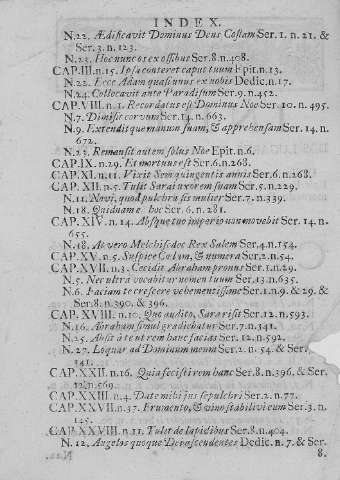 INDEX.
N.22. Ædificavit Dominus Deus Costam Ser. 1. n. 21. &
Ser. 3. n. 123.
N.23. Hoc nunc os ex ossibus Ser. 8. n. 408.
CAP. III. n. 15. Ipsa conteret caput tuum Epit. n. 13.
N.22. Ecce Adam quasi unus ex nobis Dedic. n. 17.
N.24. Collocavit ante Paradisum Ser. 9. n. 452.
CAP. VIII. n. 1. Recordatus est Dominus Noe Ser. 10. n. 495.
N.7. Dimisit corvum Ser. 14. n. 663.
N.9. Extendit que manum suam, & apprehensam Ser. 14. n.
672.
N.23. Remansit autem solus Noe Epit. n. 6.
CAP. IX. n. 29. Et mortuus est Ser. 6. n. 268.
CAP. XI. n. 11. Vixit Sem quingentis annis Ser. 6. n. 268.
CAP. XII. n. 5. Tulit Sarai uxorem suam Ser. 5. n. 229.
N.11. Novi, quod pulchra sis mulier Ser. 7. n. 339.
N.18. Quidnam e hoc Ser. 6. n. 281.
CAP. XIV. n. 14. Absque tuo imperio non movebit Ser. 14. n.
655.
N.18. At vero Melchisedec Rex Salem Ser. 4. n. 154.
CAP. XV. n. 5. Suspice Cœlum, & numera Ser. 2. n. 54.
CAP. XVII. n. 3. Cecidit Abraham pronus Ser. 1. n. 29.
N.5. Nec ultra vocabitur nomen tuum Ser. 13. n. 635.
N.6. Faciam te crescere vehementissime Ser. 1. n. 9. & 29. &
Ser. 8. n. 390. & 396.
CAP. XVIII. n. 10. Quo audito, Sara risit Ser. 12. n. 593.
N.16. Abraham simul gradiebatur Ser. 7. n. 341.
N.25. Absit à te ut rem hanc facias Ser. 12. n. 592.
N.27. Loquar ad Dominum meum Ser. 2. n. 54. & Ser.
141.
CAP. XXII. n. 16. Quia fecisti rem hanc Ser. 8. n. 396. & Ser.
12. n. 569.
CAP. XXIII. n. 4. Date mihi jus sepulchri Ser. 2. n. 77.
CAP. XXVII. n. 37. Frumento, & vino stabilivi eum Ser. 3. n.
145.
CAP. XXVIII. n. 11. Tulit de lapidibus Ser. 8. n. 404.
N.12. Angelos quoque Dei ascendentes Dedic. n. 7. & Ser.
8.